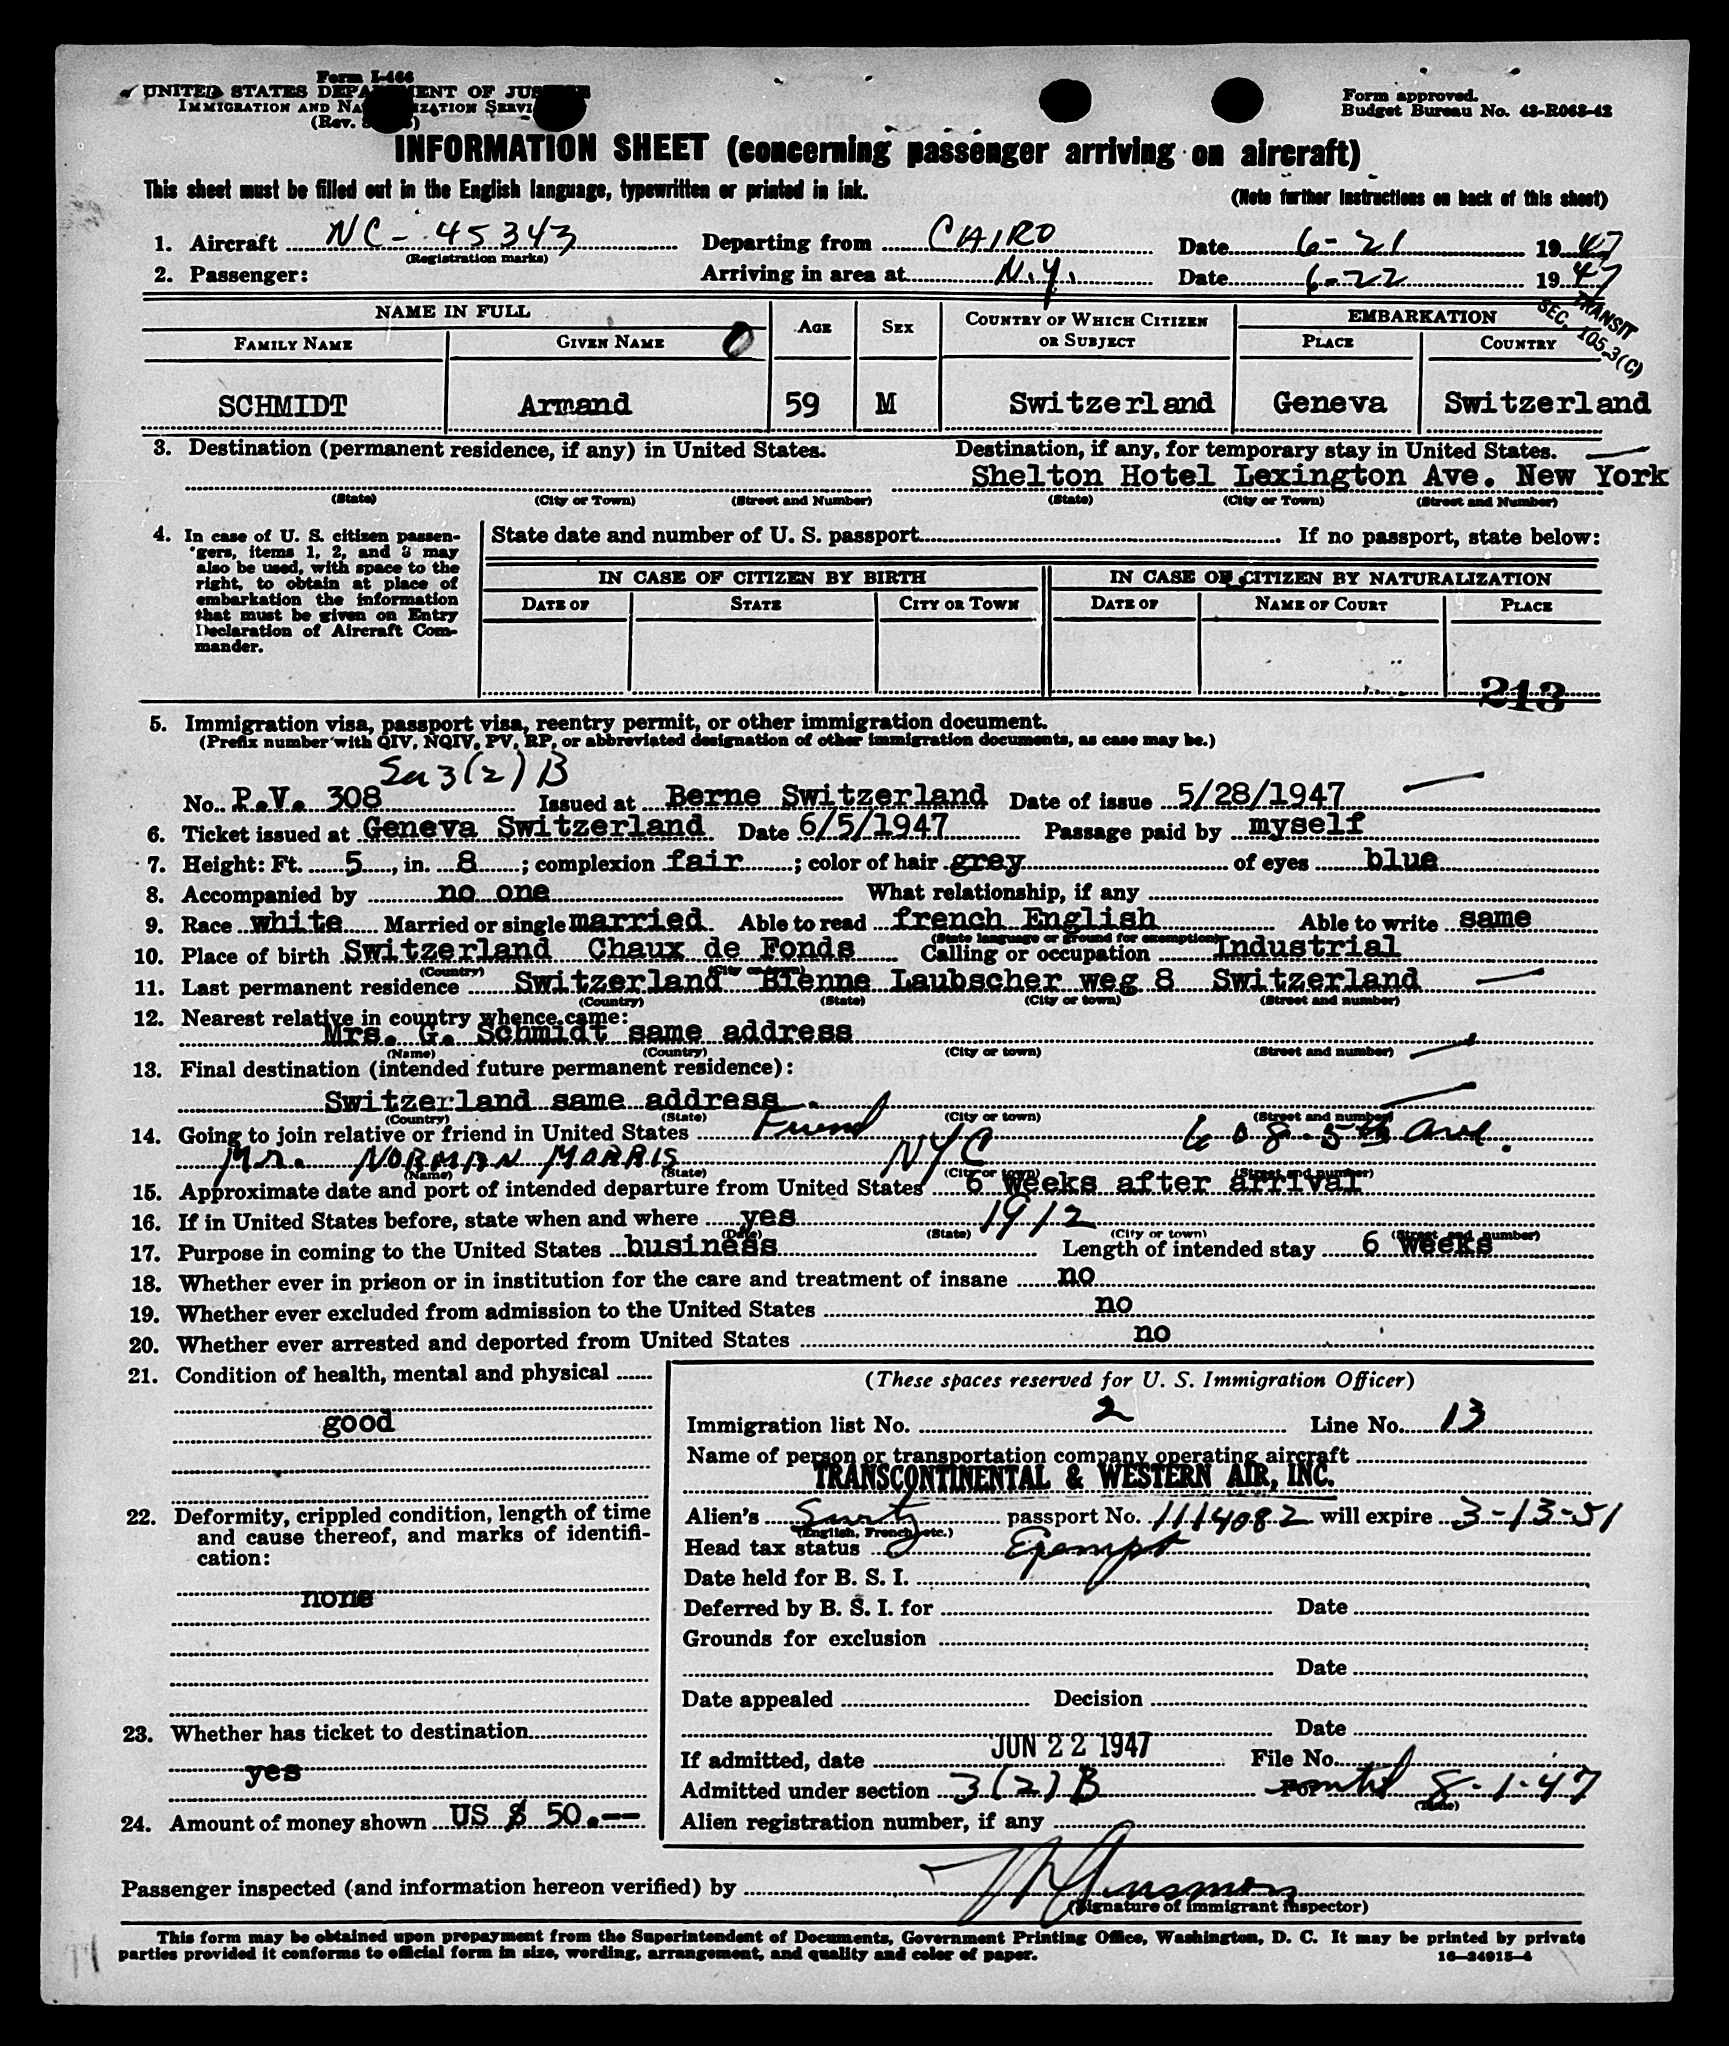 Form I-466
UNITED STATES DEPARTMENT OF JUSTICE
IMMIGRATION AND NATURALIZATION SERVICE
(Rev.
Form approved.
Budget Bureau No. 43-R063-42
INFORMATION SHEET (concerning passenger arriving on aircraft)
This sheet must be filled out in the English language, typewritten or printed in ink.
(Note further instructions on back of this sheet)
1. Aircraft NC-45343 Departing from CAIRO Date 6-21 1947
(Registration marks)
2. Passenger: Arriving in area at N.Y. Date 6-22 1947
TRANSIT
SEC. 105.3(C)
NAME IN FULL AGE SEX COUNTRY OF WHICH CITIZEN OR SUBJECT EMBARKATION
FAMILY NAME GIVEN NAME PLACE COUNTRY
SCHMIDT Armand 59 M Switzerland Geneva Switzerland
3. Destination (permanent residence, if any) in United States. Destination, if any, for temporary stay in United States.
Shelton Hotel Lexington Ave. New York
(State) (City or Town) (Street and Number) (State) (City or Town) (Street and Number)
4. In case of U. S. citizen passen-
gers, items 1, 2, and 3 may
also be used, with space to the
right, to obtain at place of
embarkation the information
that must be given on Entry
Declaration of Aircraft Com-
mander.
State date and number of U. S. passport If no passport, state below:
IN CASE OF CITIZEN BY BIRTH IN CASE OF CITIZEN BY NATURALIZATION
DATE OF STATE CITY OR TOWN DATE OF NAME OF COURT PLACE
213
5. Immigration visa, passport visa, reentry permit, or other immigration document.
(Prefix number with QIV, NQIV, PV, RP, or abbreviated designation of other immigration documents, as case may be.)
3(2)B
No. P.V. 308 Issued at Berne Switzerland Date of issue 5/28/1947
6. Ticket issued at Geneva Switzerland Date 6/5/1947 Passage paid by myself
7. Height: Ft. 5, in. 8; complexion fair; color of hair grey of eyes blue
8. Accompanied by no one What relationship, if any
9. Race white Married or single married Able to read french English Able to write same
(State language or ground for exemption)
10. Place of birth Switzerland Chaux de Fonds Calling or occupation Industrial
(Country) (City or town)
11. Last permanent residence Switzerland Bienne Laubscher weg 8 Switzerland
(Country) (State) (City or town) (Street and number)
12. Nearest relative in country whence came:
Mrs. G. Schmidt same address
(Name) (Country) (City or town) (Street and number)
13. Final destination (intended future permanent residence):
Switzerland same address.
(Country) (State) (City or town) (Street and number)
14. Going to join relative or friend in United States Friend 608-5th Ave.
Mr. NORMAN MORRIS NYC
(Name) (State) (City or town) (Street and number)
15. Approximate date and port of intended departure from United States 6 Weeks after arrival
16. If in United States before, state when and where yes 1912
(Date) (State) (City or town) (Street and number)
17. Purpose in coming to the United States business Length of intended stay 6 Weeks
18. Whether ever in prison or in institution for the care and treatment of insane no
19. Whether ever excluded from admission to the United States no
20. Whether ever arrested and deported from United States no
21. Condition of health, mental and physical
good
22. Deformity, crippled condition, length of time
and cause thereof, and marks of identifi-
cation:
none
23. Whether has ticket to destination
yes
24. Amount of money shown US $ 50.--
(These spaces reserved for U. S. Immigration Officer)
Immigration list No. 2 Line No. 13
Name of person or transportation company operating aircraft
TRANSCONTINENTAL & WESTERN AIR, INC.
Alien's passport No. 1114082 will expire 3-13-51
(English, French, etc.)
Head tax status Exempt
Date held for B. S. I.
Deferred by B. S. I. for Date
Grounds for exclusion
Date
Date appealed Decision
Date
If admitted, date JUN 22 1947 File No.
Admitted under section 3(2)B For until 8-1-47
(Time)
Alien registration number, if any
Passenger inspected (and information hereon verified) by
(Signature of immigrant inspector)
This form may be obtained upon prepayment from the Superintendent of Documents, Government Printing Office, Washington, D. C. It may be printed by private
parties provided it conforms to official form in size, wording, arrangement, and quality and color of paper.
16-24915-4